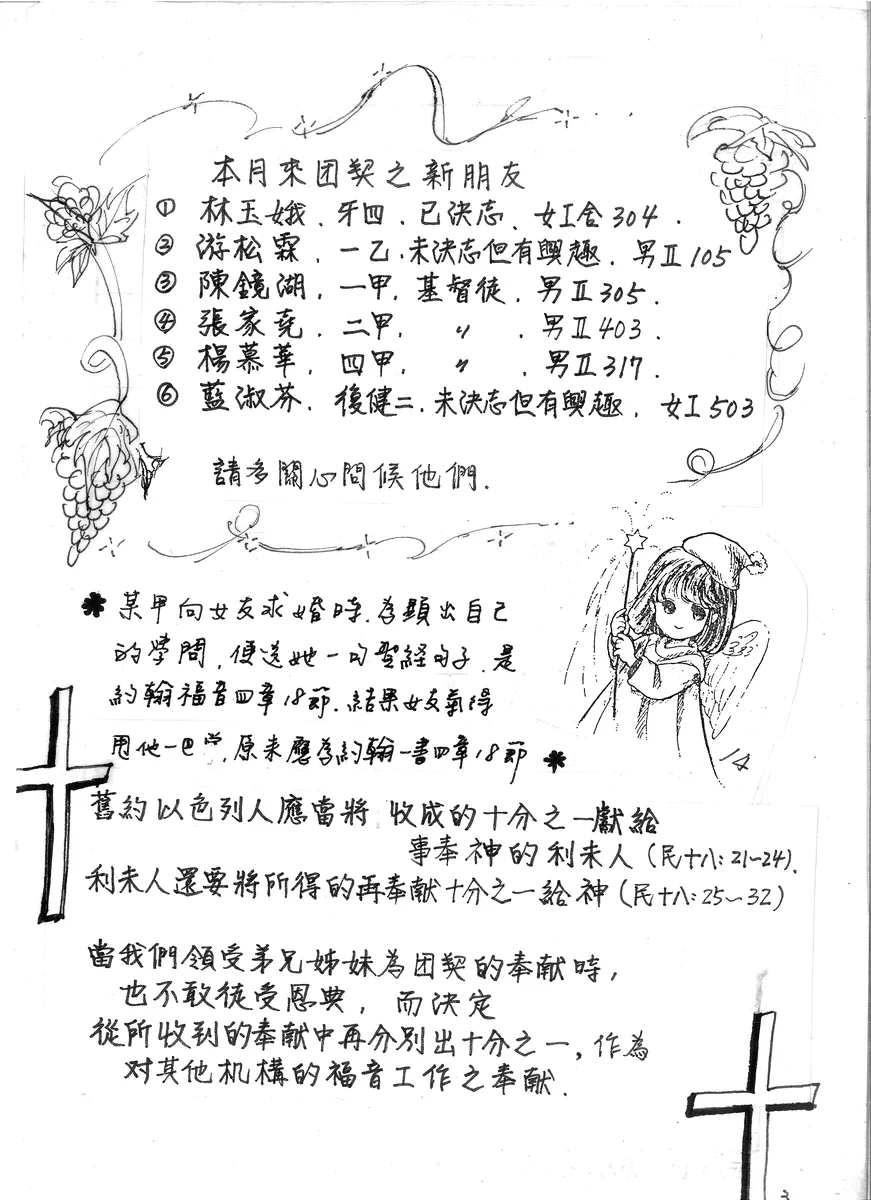 本月來団契之新朋友
① 林玉娥．牙四．已決志．女Ⅰ舍304．
② 游松霖．一乙．未決志但有興趣．男Ⅱ105
③ 陳鏡湖．一甲．基督徒．男Ⅱ305．
④ 張家堯．二甲．〃．男Ⅱ403．
⑤ 楊慕華．四甲．〃．男Ⅱ317．
⑥ 藍淑芬．復健二．未決志但有興趣．女Ⅰ503
請多關心問候他們．
＊某甲向女友求婚時．為顯出自己
的學問，便送她一句聖經句子．是
約翰福音四章18節．結果女友氣得
甩他一巴掌，原來應為約翰一書四章18節＊
舊約以色列人應當將 收成的十分之一獻給
事奉神的利未人（民十八：21～24）．
利未人還要將所得的再奉献十分之一給神（民十八：25～32）
當我們領受弟兄姊妹為团契的奉献時，
也不敢徒受恩典，而決定
從所收到的奉献中再分別出十分之一，作為
对其他机構的福音工作之奉献．
3